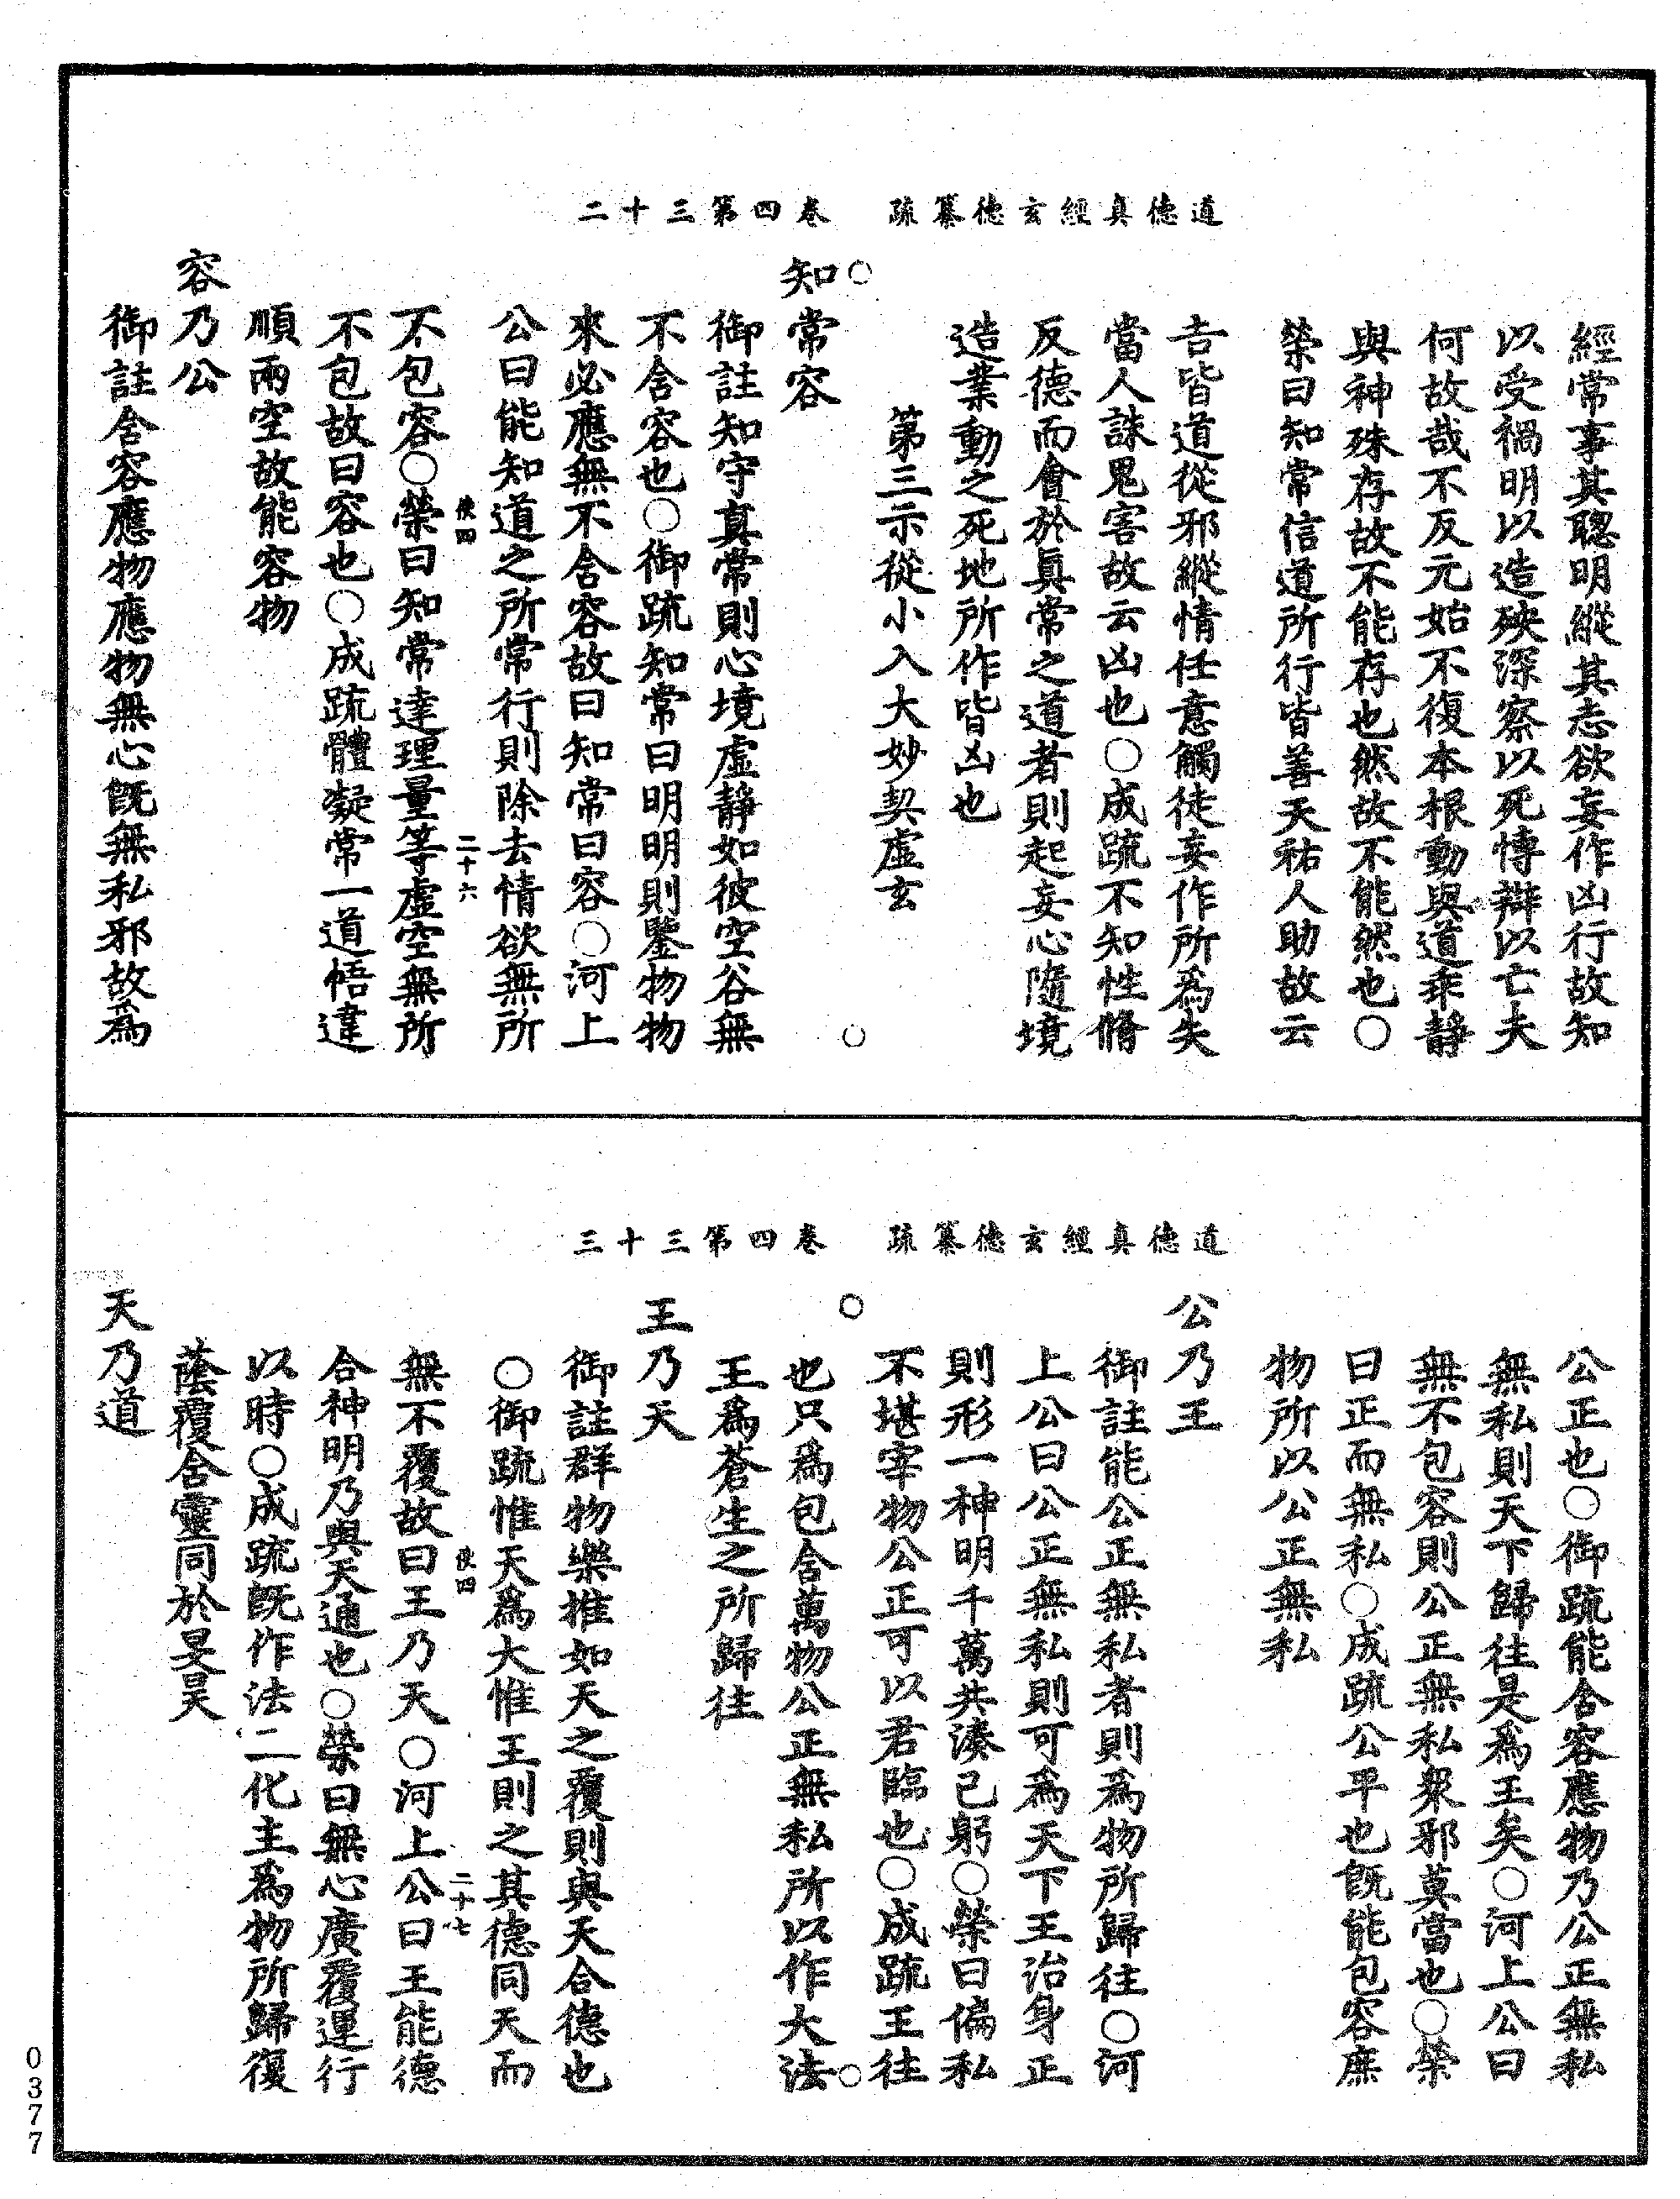 道德真經玄德纂疏　卷四第三十二
經常事其聰明縱其志欲妄作凶行故知
以受禍明以造殃深察以死博辯以亡夫
何故哉不反元始不復本根動與道乖靜
與神殊存故不能存也然故不能然也○
榮曰知常信道所行皆善天祐人助故云
吉皆道從邪縱情任意觸徒妄作所爲失
當人誅鬼害故云凶也○成疏不知性脩
反德而會於眞常之道者則起妄心隨境
造業動之死地所作皆凶也
第三示從小入大妙契虛玄
○
○
知常容
御註知守真常則心境虛靜如彼空谷無
不含容也○御疏知常曰明明則鑒物物
來必應無不含容故曰知常曰容○河上
公曰能知道之所常行則除去情欲無所
使四　二十六
不包容○榮曰知常達理量等虛空無所
不包故曰容也○成疏體凝常一道悟違
順兩空故能容物
容乃公
御註含容應物應物無心既無私邪故爲
道德真經玄德纂疏　卷四第三十三
公正也○御疏能含容應物乃公正無私
無私則天下歸往是爲王矣○河上公曰
無不包容則公正無私衆邪莫當也○榮
曰正而無私○成疏公平也既能包容庶
物所以公正無私
公乃王
御註能公正無私者則爲物所歸往○河
上公曰公正無私則可爲天下王治身正
則形一神明千萬共湊己躬○榮曰偏私
不堪宰物公正可以君臨也○成疏王往
○
○
也只爲包含萬物公正無私所以作大法
王爲蒼生之所歸往
王乃天
御註群物樂推如天之覆則與天合德也
○御疏惟天爲大惟王則之其德同天而
使四　二十七
無不覆故曰王乃天○河上公曰王能德
合神明乃與天通也○榮曰無心廣覆運行
以時○成疏既作法二化主爲物所歸復
蔭覆含靈同於旻昊
天乃道
0377